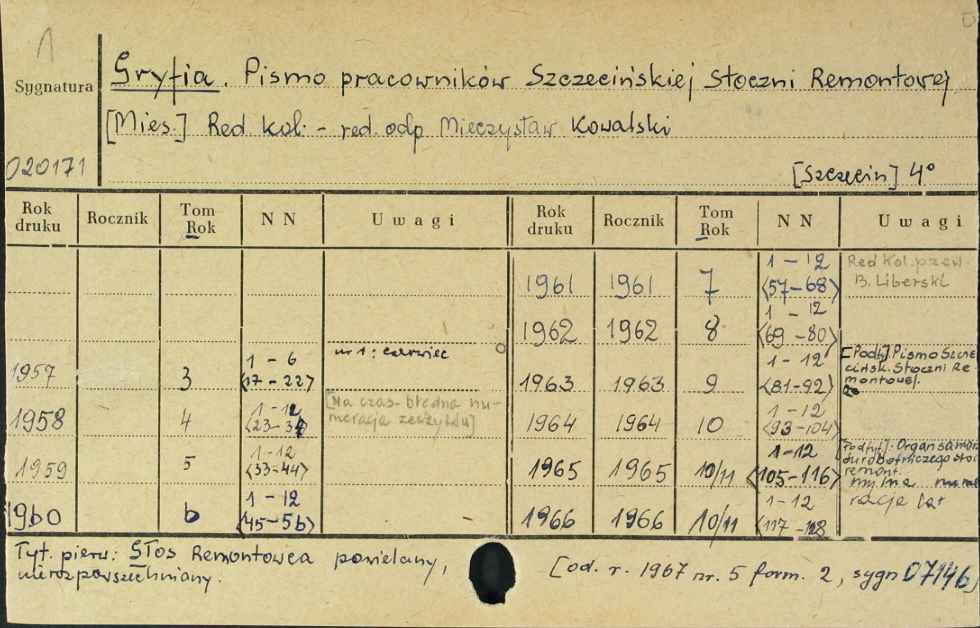 1
Sygnatura
Gryfia. Pismo pracowników Szczecińskiej Stoczni Remontowej
[Mies.] Red. kol. - red. odp. Mieczysław Kowalski
020171
[Szczecin] 4°
Rok druku Rocznik Tom Rok NN Uwagi
1957 3 1-6 <17-22> nr 1: czerwiec
1958 4 1-12 <23-34> [Na czas. błędna numeracja zeszytów]
1959 5 1-12 <33-44>
1960 6 1-12 <45-56>
Rok druku Rocznik Tom Rok NN Uwagi
1961 1961 7 1-12 <57-68> Red. kol. przew. B. Liberski
1962 1962 8 1-12 <69-80>
1963 1963 9 1-12 <81-92> [Podtyt.] Pismo Szczecińsk. Stoczni Remontowej.
1964 1964 10 1-12 <93-104>
1965 1965 10/11 1-12 <105-116> [Podtyt.]: Organ samorządu robotniczego stoczni remont. mylna numeracja lat
1966 1966 10/11 1-12 <117-128>
Tyt. pierw: Głos Remontowca powielany,
nierozpowszechniany.
[od. r. 1967 nr. 5 form. 2, sygn 07146]